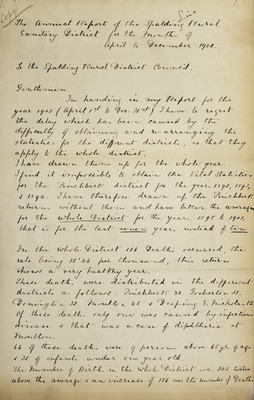 Copy
The Annual Report of the Spalding Rural
Sanitary District for the Months of
April to December 1902.
To the Spalding Rural District Council.
Gentlemen
In handing in my Report for the
year 1902 (April 1st to Dec. 31st) I have to regret
the delay which has been caused by the
difficulty of obtaining and re-arranging the
statistics for the different districts, so that they
apply to the whole district.
I have drawn them up for the whole year.
I find it impossible to obtain the Vital Statistics
for the Pinchbeck district for the year
I have therefore drawn up the Pinchbeck
returns without them and have taken the average
for the whole District for the year 1895 to 1901,
that is for the last seven years, instead of ten
In the whole District 188 Deaths occurred, the
rate being per thousand, this return
shows a very healthy year.
These deaths were distributed in the different
districts as follows: Pinchbeck
Donington 32, Moulton 40 & Deeping St Nicholas
Of these deaths only one was caused by infectious
disease & that was a case of diphtheria at
Moulton.
66 of these deaths were of persons above 65 yrs of age
& 38 of infants under one year old.
The Number of Births in the Whole District was
above the average & an increase of 188 over the number of Deaths